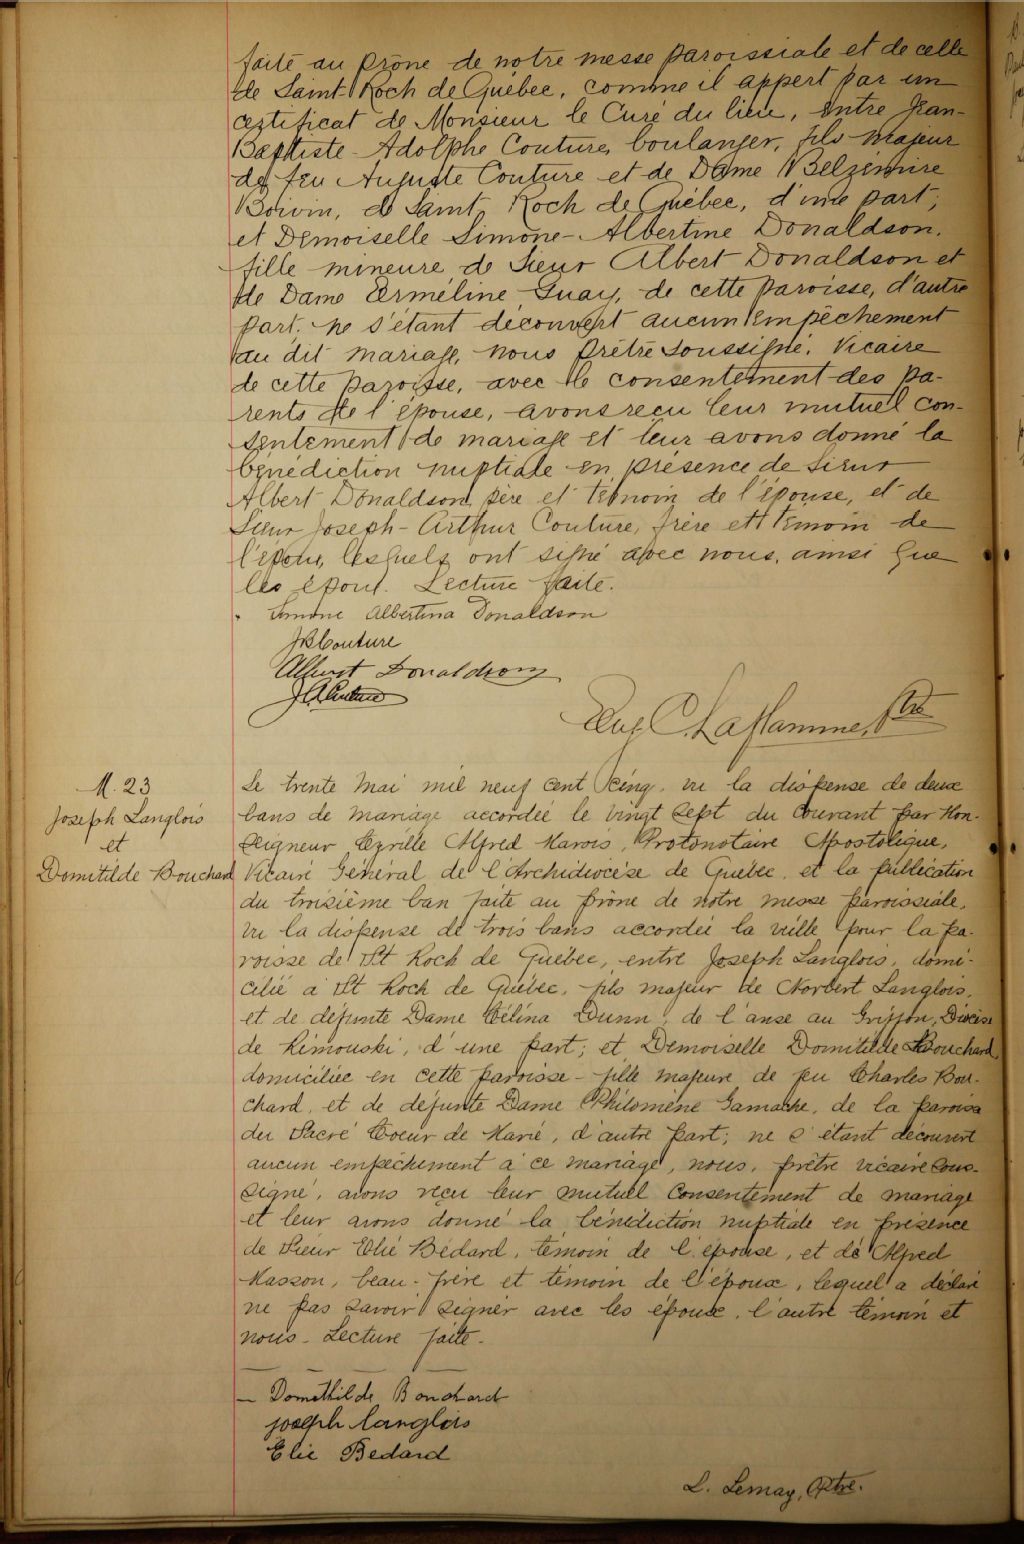 faite au prône de notre messe paroissiale et de celle
de Saint-Roch de Québec, comme il appert par un
certificat de Monsieur le Curé du lieu, entre Jean-
Baptiste-Adolphe Couture, boulanger, fils majeur
de feu Auguste Couture et de Dame Belzémire
Boivin, de Saint Roch de Québec, d'une part;
et Demoiselle Simone-Albertine Donaldson,
fille mineure de Sieur Albert Donaldson et
de Dame Erméline Guay, de cette paroisse, d'autre
part; ne s'étant découvert aucun empêchement
au dit mariage, nous prêtre soussigné, Vicaire
de cette paroisse, avec le consentement des pa-
rents de l'épouse, avons reçu leur mutuel con-
sentement de mariage et leur avons donné la
bénédiction nuptiale en présence de Sieur
Albert Donaldson, père et témoin de l'épouse, et de
Sieur Joseph-Arthur Couture, frère et témoin de
l'époux, lesquels ont signé avec nous, ainsi que
les époux. Lecture faite.
Simone Albertina Donaldson
J B Couture
Albert Donaldson
J. A. Couture
Eug. C. Laflamme, Ptre
M. 23
Joseph Langlois
et
Domitilde Bouchard
Le trente Mai mil neuf cent cinq, vu la dispense de deux
bans de mariage accordée le vingt sept du courant par Mon-
seigneur Cyrille Alfred Marois, Protonotaire Apostolique,
Vicaire Général de l'Archidiocèse de Québec, et la publication
du troisième ban faite au prône de notre messe paroissiale,
vu la dispense de trois bans accordée la veille pour la pa-
roisse de St Roch de Québec, entre Joseph Langlois, domi-
cilié à St Roch de Québec, fils majeur de Norbert Langlois,
et de défunte Dame Célina Dunn, de l'anse au Griffon, Diocèse
de Rimouski, d'une part; et Demoiselle Domitilde Bouchard,
domiciliée en cette paroisse - fille majeure de feu Charles Bou-
chard, et de défunte Dame Philomène Gamache, de la paroisse
du Sacré Coeur de Marie, d'autre part; ne s'étant découvert
aucun empêchement à ce mariage, nous, prêtre vicaire sous-
signé, avons reçu leur mutuel consentement de mariage
et leur avons donné la bénédiction nuptiale en présence
de Sieur Elié Bédard, témoin de l'épouse, et de Alfred
Masson, beau-frère et témoin de l'époux, lequel a déclaré
ne pas savoir signer avec les époux, l'autre témoin et
nous - Lecture faite.
Domithilde Bouchard
joseph langlois
Elie Bedard
L. Lemay, Ptre.